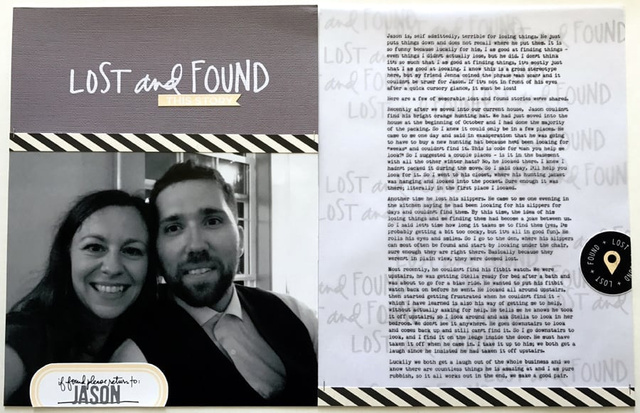 LOST and FOUND
THIS STORY
if found please return to:
JASON
Jason is, self admittedly, terrible for losing things. He just
puts things down and does not recall where he put them. It is
so funny because luckily for him, I'm good at finding things -
even things I didn't actually lose, but he did. I don't think
it's so much that I am good at finding things, it's mostly just
that I am good at looking. I know this is a gross stereotype
here, but my friend Jenna coined the phrase and it
couldn't be truer for Jason. If it's not in front of his eyes
after a quick cursory glance, it must be lost!
Here are a few of memorable lost and found stories we've shared.
Recently after we moved into our current house, Jason couldn't
find his bright orange hunting hat. We had just moved into the
house at the beginning of October and I had done the majority
of the packing. So I knew it could only be in a few places. He
came to me one day and said in exasperation that he was going
to have to buy a new hunting hat because he'd been looking for
and couldn't find it. This is code for can you help me
look? So I suggested a couple places - is it in the basement
with all the other winter hats? No, he looked there. I knew I
hadn't packed it during the move. So I said okay, I'll help you
look for it. So I went to his closet, where his hunting jacket
was hanging, and looked into the pocket. Sure enough it was
there; literally in the first place I looked.
Another time he lost his slippers. He came to me one evening in
the kitchen saying he had been looking for his slippers for
days and couldn't find them. By this time, the idea of his
losing things and me finding them had become a joke between us.
So I said let's time how long it takes me to find them (yes, I'm
probably getting a bit too cocky, but it's all in good fun). He
rolls his eyes and smiles. So I go to the den, where his slippers
can most often be found and start by looking under the chair,
sure enough they are right there. Basically because they
weren't in plain view, they were deemed lost.
Most recently, he couldn't find his fitbit watch. We were
upstairs, he was getting Stella ready for bed after a bath and
was about to go for a bike ride. He wanted to put his fitbit
watch back on before he went. He looked all around upstairs,
then started getting frustrated when he couldn't find it -
which I have learned is also his way of getting me to help,
without actually asking for help. He tells me he knows he took
it off upstairs, so I look around and ask Stella to look in her
bedroom. We don't see it anywhere. He goes downstairs to look
and comes back up and still can't find it. So I go downstairs to
look, and I find it on the ledge inside the door. He must have
taken it off when he came in. I take it up to him; we both get a
laugh since he insisted he had taken it off upstairs.
Luckily we both get a laugh out of the whole business and we
know there are countless things he is amazing at and I am pure
rubbish, so it all works out in the end, we make a good pair.
LOST • FOUND • LOST • FOUND